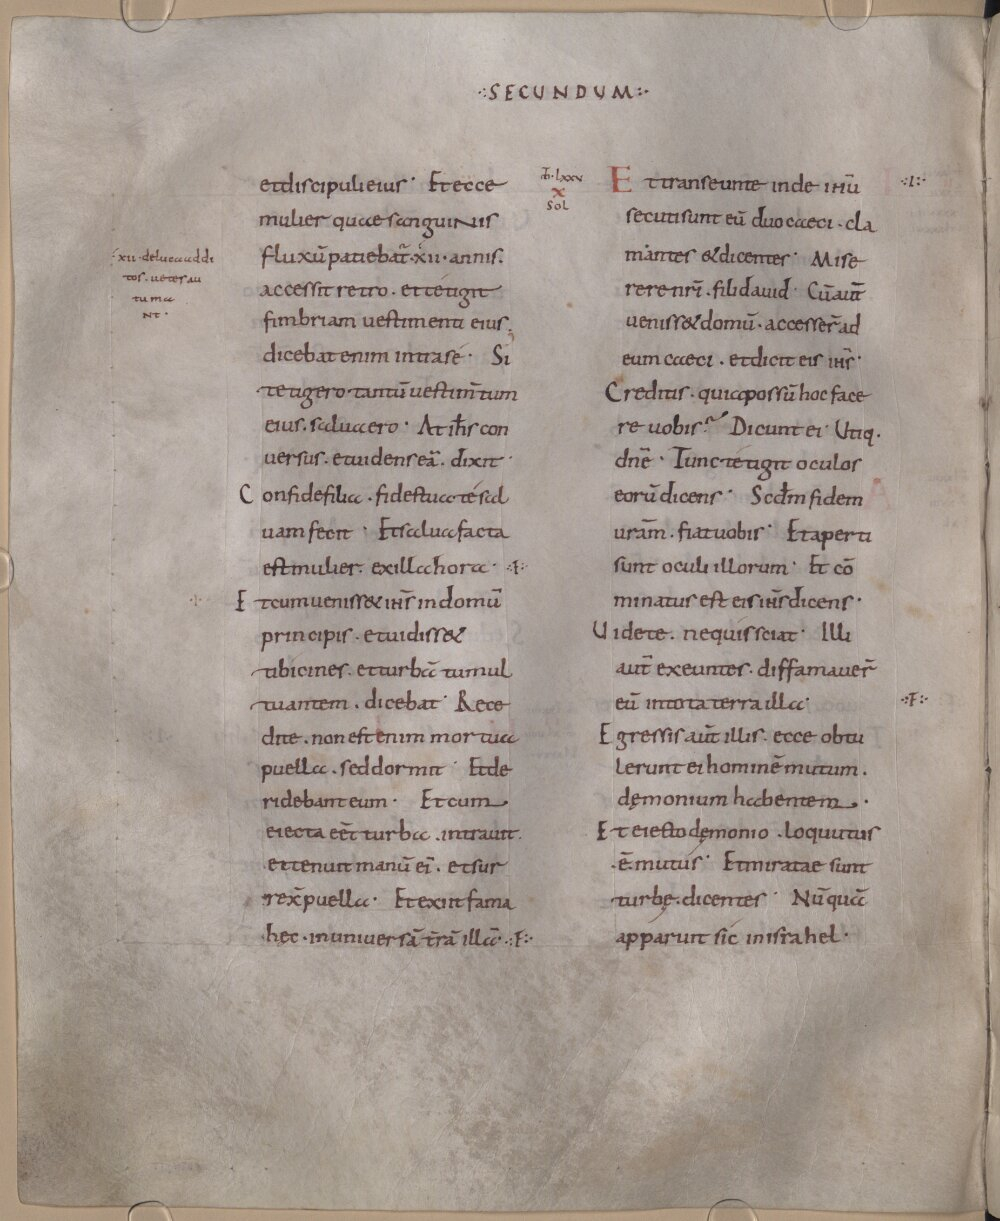 ·:SECUNDUM:·
et discipuli eius · Et ecce
mulier quae sanguinis
fluxū patiebat̄ · xii · annis ·
accessit retro · et tetigit
fimbriam uestimenti eius;
dicebat enim intra se · Si
tetigero tantū uestim̄tum
eius · salua ero · At ih̄s con
uersus · et uidens eā · dixit ·
Confide filia · fides tua te sal
uam fecit · Et salua facta
est mulier · ex illa hora · ·:F:·
Et cum uenisset ih̄s in domū
principis · et uidisset
tibicines · et turbā tumul
tuantem · dicebat · Rece
dite · non est enim mortua
puella · sed dormit · Et de
ridebant eum · Et cum
eiecta eēt turba · intrauit ·
et tenuit manū ei · et sur
rex̄ puella · Et exiit fama
hęc · in uniuersā t̄rā illā · ·:F:·
xii · de lue addi
tos · ueter au
tuma
NT ·
lxxx
x
SOL
Et transeunte inde ih̄ū
secuti sunt eū duo caeci · cla
mantes & dicentes · Mise
rere nr̄i · fili dauid · Cū aut̄
uenisset domū · accesser̄ ad
eum caeci · et dicit eis ih̄s ·
Creditis · quia possū hoc face
re uobis · Dicunt ei · Utiq·
dn̄e · Tunc tetigit oculos
eorū dicens · Scd̄m fidem
ur̄am · fiat uobis · Et aperti
sunt oculi illorum · Et cō
minatus est eis ih̄s dicens ·
Uidete · ne quis sciat · Illi
aut̄ exeuntes · diffamauer̄
eū in tota terra illa ·
Egressis aut̄ illis · ecce obtu
lerunt ei hominē mutum ·
dęmonium habentem ·
Et eiecto dęmonio · loquutus
·ē mutus · Et miratae sunt
turbę · dicentes · Nūquā
apparuit sic in israhel ·
·:I:·
·:F:·